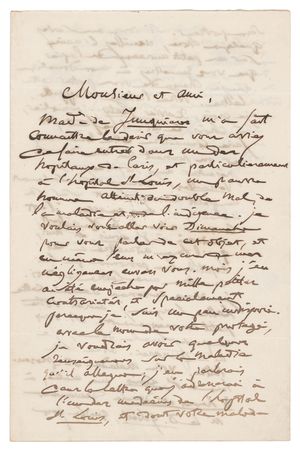 Monsieur et ami,
Made de Junquières m'a fait
connaître le desir que vous aviez
de faire entrer dans un des
hopitaux de Paris, et particulièrement
à l'hopital St Louis, un pauvre
homme atteint du double mal de
la maladie et de l'indigence. je
voulais vous aller voir Dimanche
pour vous parler de cet objet, et
en même tems m'excuser de mes
négligences envers vous. mais j'en
ai été empêché par mille petites
contrariétés et specialement
parceque je suis un peu indisposé.
avec le nom de votre protégé,
je voudrais avoir quelques
renseignemens sur la maladie
qu'il allegue; j'en parlerais
dans la lettre que j'adresserai à
l'un des medecins de l'hopital
St Louis, et dont votre malade